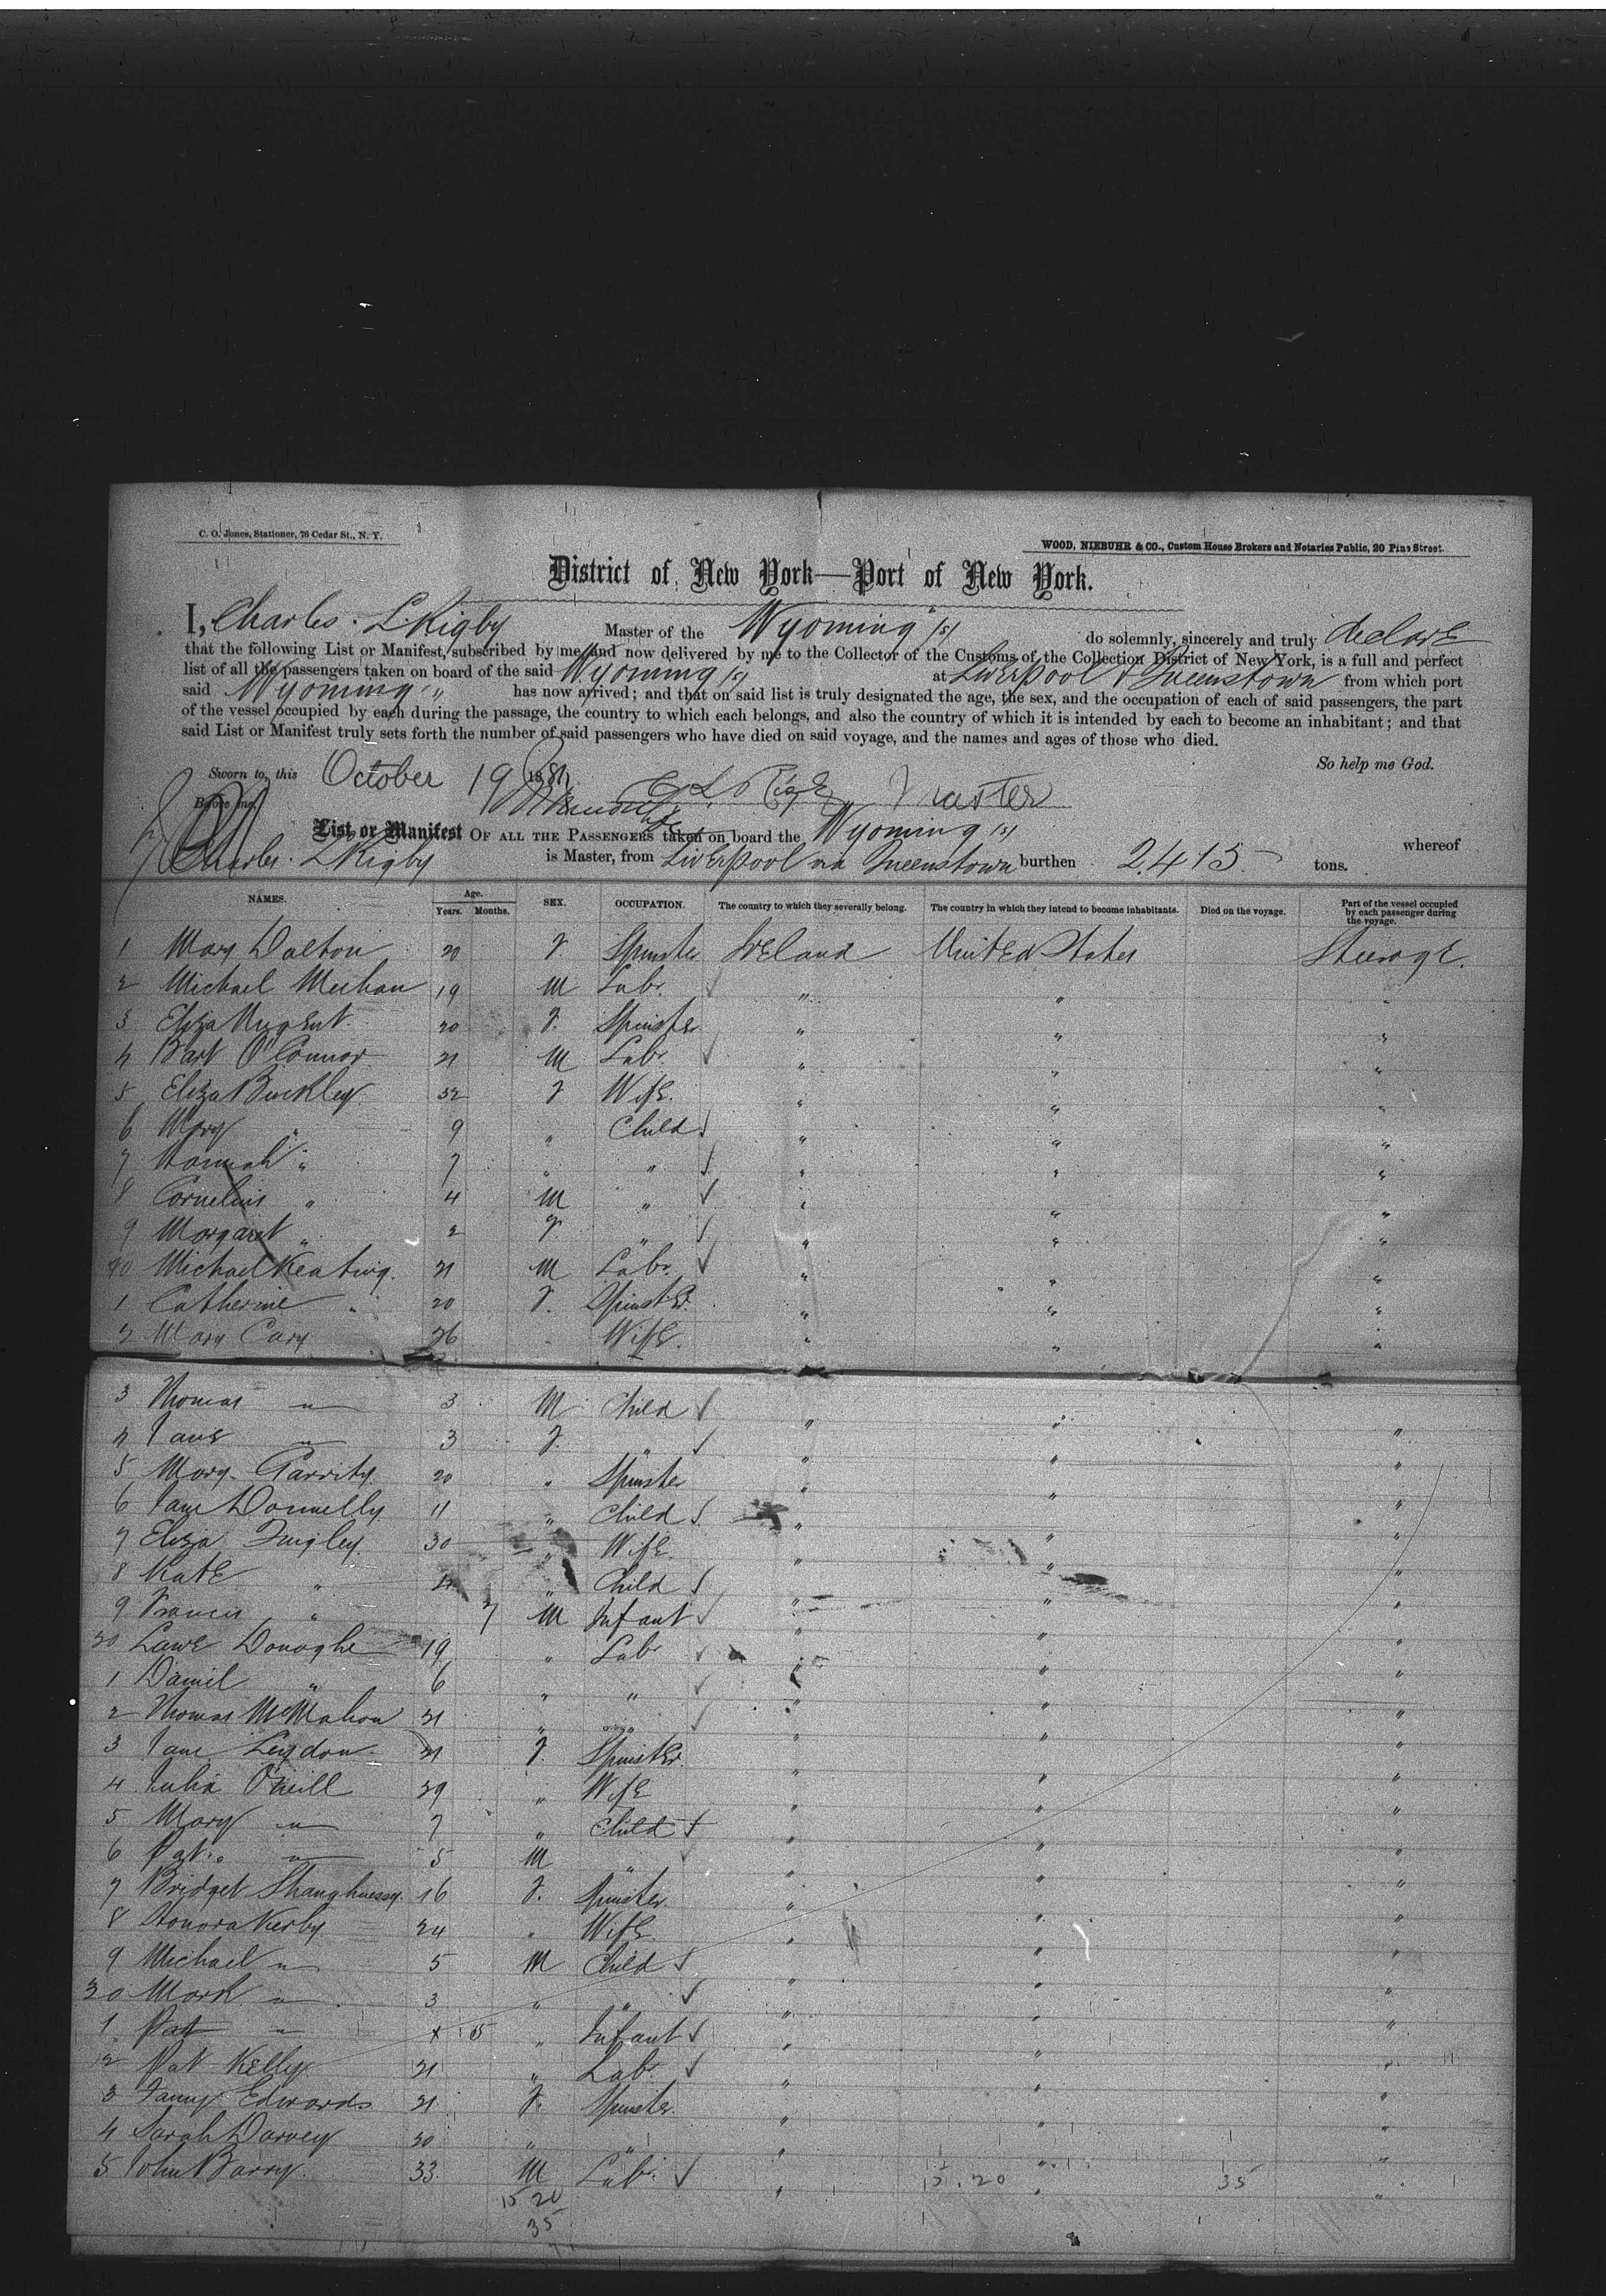 C. O. Jones, Stationer, 76 Cedar St., N. Y.
WOOD, NIEBUHR & CO., Custom House Brokers and Notaries Public, 20 Pine Street.
District of New York—Port of New York.
I, Charles. L Rigby Master of the "Wyoming" do solemnly, sincerely and truly declare
that the following List or Manifest, subscribed by me and now delivered by me to the Collector of the Customs of the Collection District of New York, is a full and perfect
list of all the passengers taken on board of the said Wyoming at Liverpool & Queenstown from which port
said Wyoming " has now arrived; and that on said list is truly designated the age, the sex, and the occupation of each of said passengers, the part
of the vessel occupied by each during the passage, the country to which each belongs, and also the country of which it is intended by each to become an inhabitant; and that
said List or Manifest truly sets forth the number of said passengers who have died on said voyage, and the names and ages of those who died.
So help me God.
Sworn to, this October 19 1881
Before me, C. L. Rigby Master
List or Manifest OF ALL THE PASSENGERS taken on board the Wyoming whereof
Charles. L Rigby is Master, from Liverpool via Queenstown burthen 2.415 tons.
NAMES. Age. Years. Months. SEX. OCCUPATION. The country to which they severally belong. The country in which they intend to become inhabitants. Died on the voyage. Part of the vessel occupied by each passenger during the voyage.
1 Mary Dalton 20 F. Spinster Ireland United States Steerage.
2 Michael Meehan 19 M Labr. " " "
3 Eliza Nugent. 20 F. Spinster " " "
4 Bart O'Connor 21 M Labr. " " "
5 Eliza Buckley. 32 F Wife. " " "
6 Mary " 9 " Child " " "
7 Hannah " 7 " " " " "
8 Cornelius " 4 M " " " "
9 Margaret " 2 F. " " " "
10 Michael Keating. 21 M Labr. " " "
1 Catherine " 20 F. Spinster. " " "
2 Mary Cary 26 Wife. " " "
3 Thomas " 3 M Child " " "
4 Jane " 3 F. " " " "
5 Mary Garrity 20 " Spinster " " "
6 Jane Donnelly 11 " Child " " "
7 Eliza Quigley. 30 " Wife. " " "
8 Kate " 4 " Child " " "
9 Francis " 7 M Infant " " "
20 Lawe Donoghe 19 " Labr " " "
1 Daniel " 6 " " " " "
2 Thomas McMahon 21 " " " " "
3 Jane 21 F. Spinster. " " "
4 Julia O'Neill 29 " Wife " " "
5 Mary " 7 " Child " " "
6 Pat. " 5 M " " " "
7 Bridget Shaughnessy. 16 F. Spinster. " " "
8 Honora Kerby 24 " Wife. " " "
9 Michael " 5 M Child " " "
30 Mark " 3 " " " " "
1 Pat " " Infant " " "
2 Pat Kelly. 21 " Labr. " " "
3 Fanny Edwards 21 F. Spinster. " " "
4 Sarah Darvey 20 " " " " "
5 John Barry. 33. M Labr. " " "
15.20 35
15 20
35